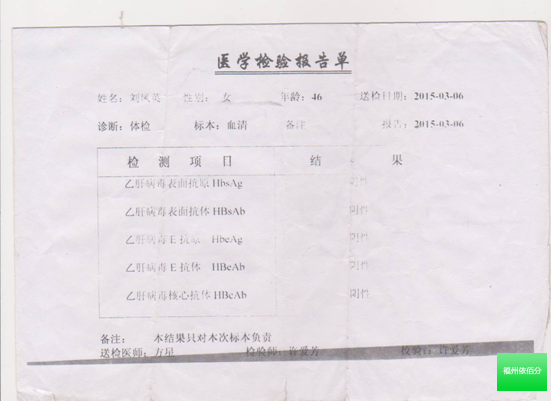 医学检验报告单
姓名：刘凤英 性别： 女 年龄：46 送检日期：2015-03-06
诊断：体检 标本：血清 备注 报告：2015-03-06
检 测 项 目 结 果
乙肝病毒表面抗原 HbsAg 阴性
乙肝病毒表面抗体 HBsAb 阴性
乙肝病毒 E 抗原 HbeAg 阴性
乙肝病毒 E 抗体 HBeAb 阴性
乙肝病毒核心抗体 HBcAb 阴性
备注： 本结果只对本次标本负责
送检医师：方星 检验师：许爱芳 校验者：许爱芳
福州依佰分